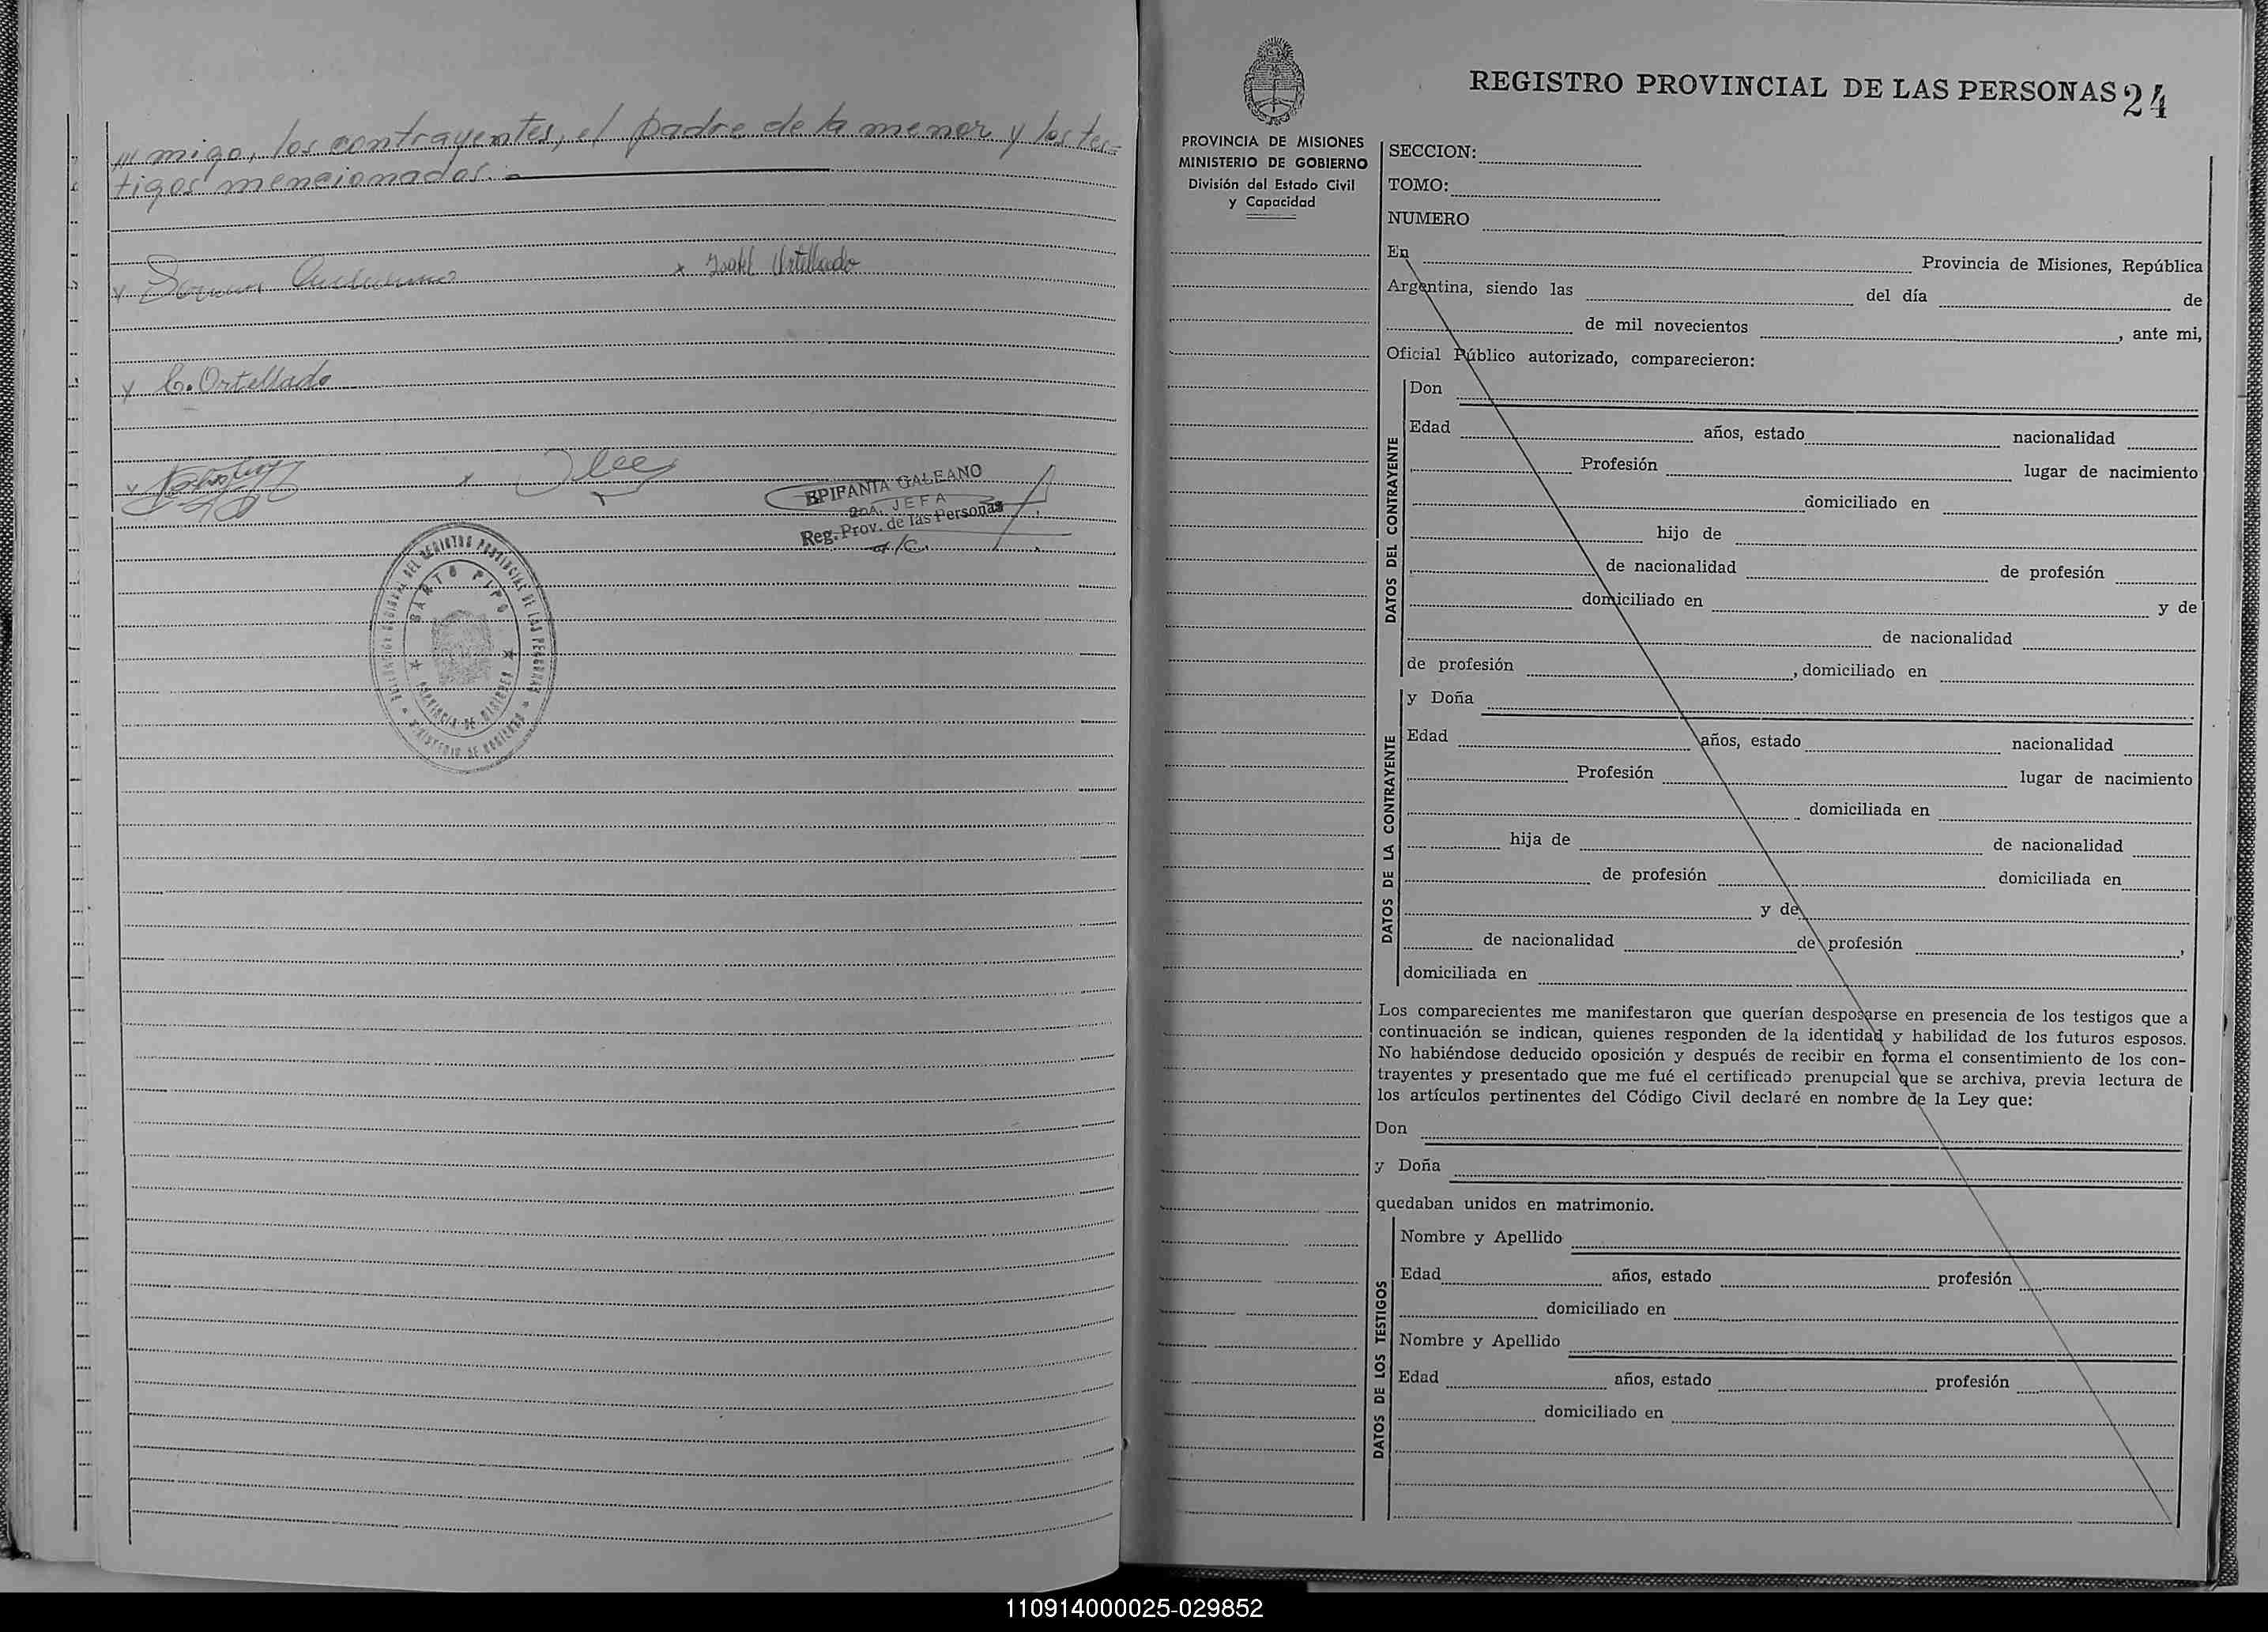 /// migo, los contrayentes, el padre de la menor y los tes-
tigos mencionados.-
x
x Isabel Ortellado
x C. Ortellado
x
x
EPIFANIA GALEANO
2DA. JEFA
Reg. Prov. de las Personas
a/c.
DEL REGISTRO PROVINCIAL DE LAS PERSONAS
MINISTERIO DE GOBIERNO
PROVINCIA DE MISIONES
REGISTRO PROVINCIAL DE LAS PERSONAS 24
PROVINCIA DE MISIONES
MINISTERIO DE GOBIERNO
División del Estado Civil
y Capacidad
SECCION:
TOMO:
NUMERO
En Provincia de Misiones, República
Argentina, siendo las del día de
de mil novecientos , ante mi,
Oficial Público autorizado, comparecieron:
DATOS DEL CONTRAYENTE
Don
Edad años, estado nacionalidad
Profesión lugar de nacimiento
domiciliado en
hijo de
de nacionalidad de profesión
domiciliado en y de
de nacionalidad
de profesión , domiciliado en
DATOS DE LA CONTRAYENTE
y Doña
Edad años, estado nacionalidad
Profesión lugar de nacimiento
domiciliada en
hija de de nacionalidad
de profesión domiciliada en
y de
de nacionalidad de profesión ,
domiciliada en
Los comparecientes me manifestaron que querían desposarse en presencia de los testigos que a
continuación se indican, quienes responden de la identidad y habilidad de los futuros esposos.
No habiéndose deducido oposición y después de recibir en forma el consentimiento de los con-
trayentes y presentado que me fué el certificado prenupcial que se archiva, previa lectura de
los artículos pertinentes del Código Civil declaré en nombre de la Ley que:
Don
y Doña
quedaban unidos en matrimonio.
DATOS DE LOS TESTIGOS
Nombre y Apellido
Edad años, estado profesión
domiciliado en
Nombre y Apellido
Edad años, estado profesión
domiciliado en
110914000025-029852